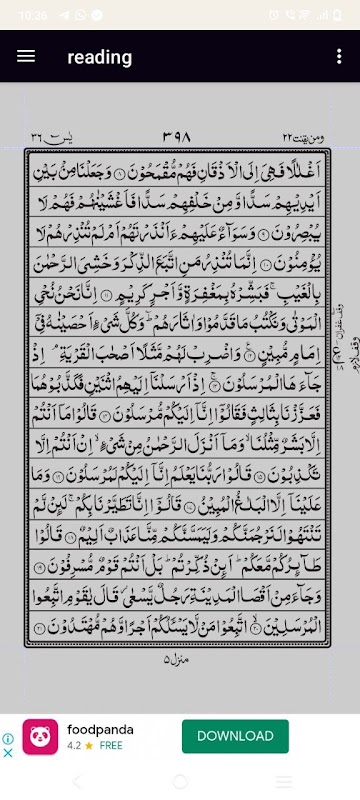 10:36
reading
يٰسٓ ٣٦
٣٩٨
ومن يقنت ٢٢
اَغْلٰلًا فَهِيَ اِلَى الْاَذْقَانِ فَهُمْ مُّقْمَحُوْنَ ۸ وَجَعَلْنَا مِنْۢ بَيْنِ
اَيْدِيْهِمْ سَدًّا وَّمِنْ خَلْفِهِمْ سَدًّا فَاَغْشَيْنٰهُمْ فَهُمْ لَا
يُبْصِرُوْنَ ۹ وَسَوَآءٌ عَلَيْهِمْ ءَاَنْذَرْتَهُمْ اَمْ لَمْ تُنْذِرْهُمْ لَا
يُؤْمِنُوْنَ ۱۰ اِنَّمَا تُنْذِرُ مَنِ اتَّبَعَ الذِّكْرَ وَخَشِيَ الرَّحْمٰنَ
بِالْغَيْبِ ۚ فَبَشِّرْهُ بِمَغْفِرَةٍ وَّاَجْرٍ كَرِيْمٍ ۱۱ اِنَّا نَحْنُ نُحْيِ
الْمَوْتٰى وَنَكْتُبُ مَا قَدَّمُوْا وَاٰثَارَهُمْ ۭ وَكُلَّ شَيْءٍ اَحْصَيْنٰهُ فِيْٓ
اِمَامٍ مُّبِيْنٍ ۱۲ وَاضْرِبْ لَهُمْ مَّثَلًا اَصْحٰبَ الْقَرْيَةِ ۘ اِذْ
جَآءَهَا الْمُرْسَلُوْنَ ۱۳ اِذْ اَرْسَلْنَآ اِلَيْهِمُ اثْنَيْنِ فَكَذَّبُوْهُمَا
فَعَزَّزْنَا بِثَالِثٍ فَقَالُوْٓا اِنَّآ اِلَيْكُمْ مُّرْسَلُوْنَ ۱۴ قَالُوْا مَآ اَنْتُمْ
اِلَّا بَشَرٌ مِّثْلُنَا ۙ وَمَآ اَنْزَلَ الرَّحْمٰنُ مِنْ شَيْءٍ ۙ اِنْ اَنْتُمْ اِلَّا
تَكْذِبُوْنَ ۱۵ قَالُوْا رَبُّنَا يَعْلَمُ اِنَّآ اِلَيْكُمْ لَمُرْسَلُوْنَ ۱۶ وَمَا
عَلَيْنَآ اِلَّا الْبَلٰغُ الْمُبِيْنُ ۱۷ قَالُوْٓا اِنَّا تَطَيَّرْنَا بِكُمْ ۚ لَئِنْ لَّمْ
تَنْتَهُوْا لَنَرْجُمَنَّكُمْ وَلَيَمَسَّنَّكُمْ مِّنَّا عَذَابٌ اَلِيْمٌ ۱۸ قَالُوْا
طَآئِرُكُمْ مَّعَكُمْ ۭ اَئِنْ ذُكِّرْتُمْ ۭ بَلْ اَنْتُمْ قَوْمٌ مُّسْرِفُوْنَ ۱۹
وَجَآءَ مِنْ اَقْصَا الْمَدِيْنَةِ رَجُلٌ يَّسْعٰى ۡ قَالَ يٰقَوْمِ اتَّبِعُوا
الْمُرْسَلِيْنَ ۲۰ اتَّبِعُوْا مَنْ لَّا يَسْـَٔلُكُمْ اَجْرًا وَّهُمْ مُّهْتَدُوْنَ ۲۱
وقف غفران
وقف لازم
منزل ٥
foodpanda
4.2 ★ FREE
DOWNLOAD